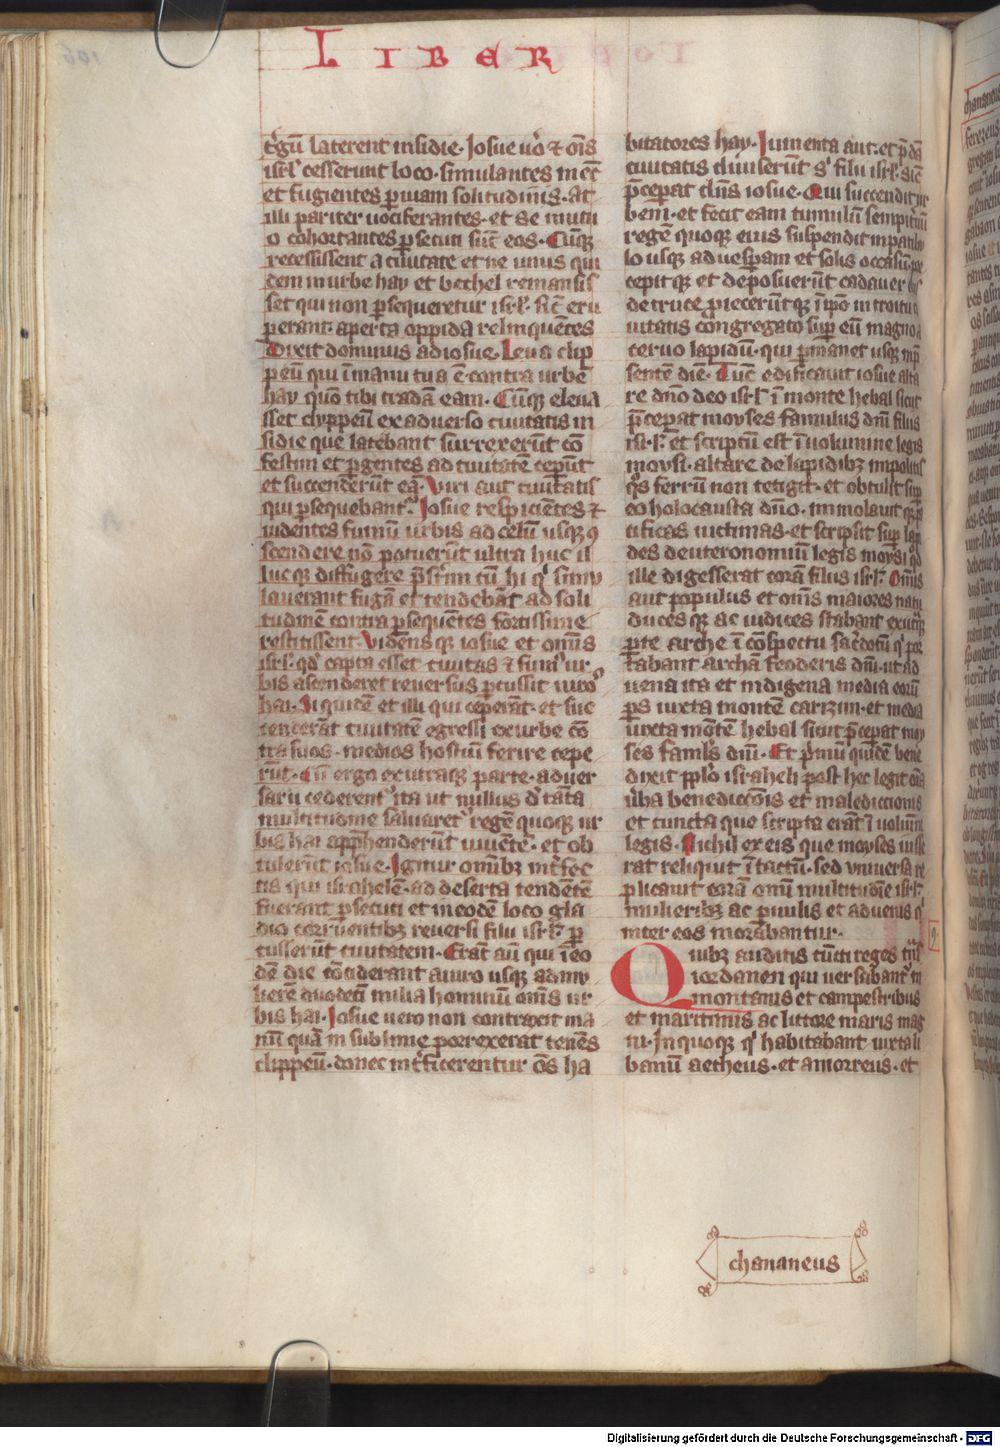 LIBER
t̾gũ laterent insidie. Josue ũo ⁊ om̃s
isrł cesserunt loco. simulantes metũ
et fugientes p uiam solitudinis. At
illi pariter uociferantes. et se mutu
o cohortantes psecuti sũt eos. Cũqꝫ
recessissent a ciuitate et ne unus qui
dem in urbe hay et bethel remansis
set qui non psequeretur isrł. sic̃ eru
perant aperta oppida relinquẽtes
Dixit dominus ad iosue. Leua clip
peũ qui ĩ manu tua ẽ contra urbẽ
hay quõ tibi tradã eam. Cũqꝫ eleua
sset clyppeũ ex aduerso ciuitatis in
sidie que latebant surrexerũt cõ
festim et pgentes ad ciuitatẽ cepũt
et succenderũt eã. Viri aut ciuitatis
qui psequebant̃ Josue respiciẽtes ⁊
uidentes fumũ urbis ad celũ usqꝫ ꝯ
scendere nõ potuerũt ultra huc il
lucqꝫ diffugere p̃sertim cũ hi qͥ simu
lauerant fugã et tendebãt ad soli
tudinẽ contra psequẽtes fortissime
restitissent. Vidensqꝫ iosue et om̃is
isrł qđ capta esset ciuitas ⁊ fumꝰ ur
bis ascenderet reuersus pcussit uiros
hai. Siquidẽ et illi qui ceperãt et suc
cenderãt ciuitatẽ egressi ex urbe cõ
tra suos. medios hostiũ ferire cepe
rũt. Cũ ergo ex utraqꝫ parte. aduer
sarii cederent̃ ita ut nullus đ tãta
multitudine saluaret̃ regẽ quoqꝫ ur
bis hai app̃henderũt uiuẽtẽ. et ob
tulerũt iosue. Igitur omĩbꝫ int̃fec
tis qui israhelẽ. ad deserta tendẽtẽ
fuerant psecuti et in eodẽ loco gla
dio corruentibꝫ reuersi filii isrł p
cusserũt ciuitatem. Erãt aũt qui ĩ eo
dẽ die cõciderant a uiro usqꝫ ad mu
lierẽ duodecĩ milia hominũ om̃s ur
bis hai. Josue uero non contraxit ma
nũ quã in sublime porrexerat tenẽs
clippeũ. donec int̃ficerentur õs ha
bitatores hay. Jumenta aut. et p̃dã
ciuitatis diuiserũt sͥ filii isrł. sic̃
p̃ceperat dñs iosue. Qui succendit ur
bem. et fecit eam tumulũ sempitnũ
regẽ quoqꝫ eius suspendit in patibu
lo usqꝫ ad uesp̃am et solis occasũ. p̃
cepitqꝫ et deposuerũt cadauer eiꝰ
de cruce p̃iecerũtqꝫ ĩ ip̃o introitu c
iuitatis congregato sup eũ magno a
ceruo lapidũ. qui p̃manet usqꝫ in p̃
sentẽ diẽ. Tũc edificauit iosue alta
re dño deo isrł ĩ monte hebal sicut
p̃ceperat moyses famulus dñi filiis
isrł. et scriptũ est ĩ uolumine legis
moysi. altare de lapidibꝫ impolitis
q̃s ferrũ non tetigit. et obtulit sup
eo holocausta dño. immolauitqꝫ pa
cificas uictimas. et scripsit sup lapi
des deuteronomiũ legis moysi qđ
ille digesserat corã filiis isrł. Om̃is
aut populus et om̃s maiores natu
ducesqꝫ ac iudices stabant ex utraqꝫ
pte arche ĩ cõspectu sac̃dotũ qͥ por
tabant archã federis dñi. ut ad
uena ita et indigena media eorũ
ps iuxta montẽ garizim. et media
iuxta mõtẽ hebal sicut p̃ceperat moy
ses famłs dñi. Et pͥmũ quidẽ bene
dixit pplo israheli post hec legit oĩa
ũba benediccõis et malediccionis
et cuncta que scripta erãt ĩ uolumĩe
legis. Nichil ex eis que moyses iusse
rat reliquit ĩtactũ. sed vniuersa re
plicauit corã omĩ multitudĩe isrł
mulieribꝫ ac puulis et aduenis qͥ
inter eos morabantur.
Quibꝫ auditis cũcti reges trñs
iordanen qui uersabant̃ in
montanis et campestribus
et maritimis ac littore maris mag
ni. Jn quoqꝫ qͥ habitabant iuxta li
banũ aetheus. et amorreus. et
chananeus
Digitalisierung gefördert durch die Deutsche Forschungsgemeinschaft - DFG